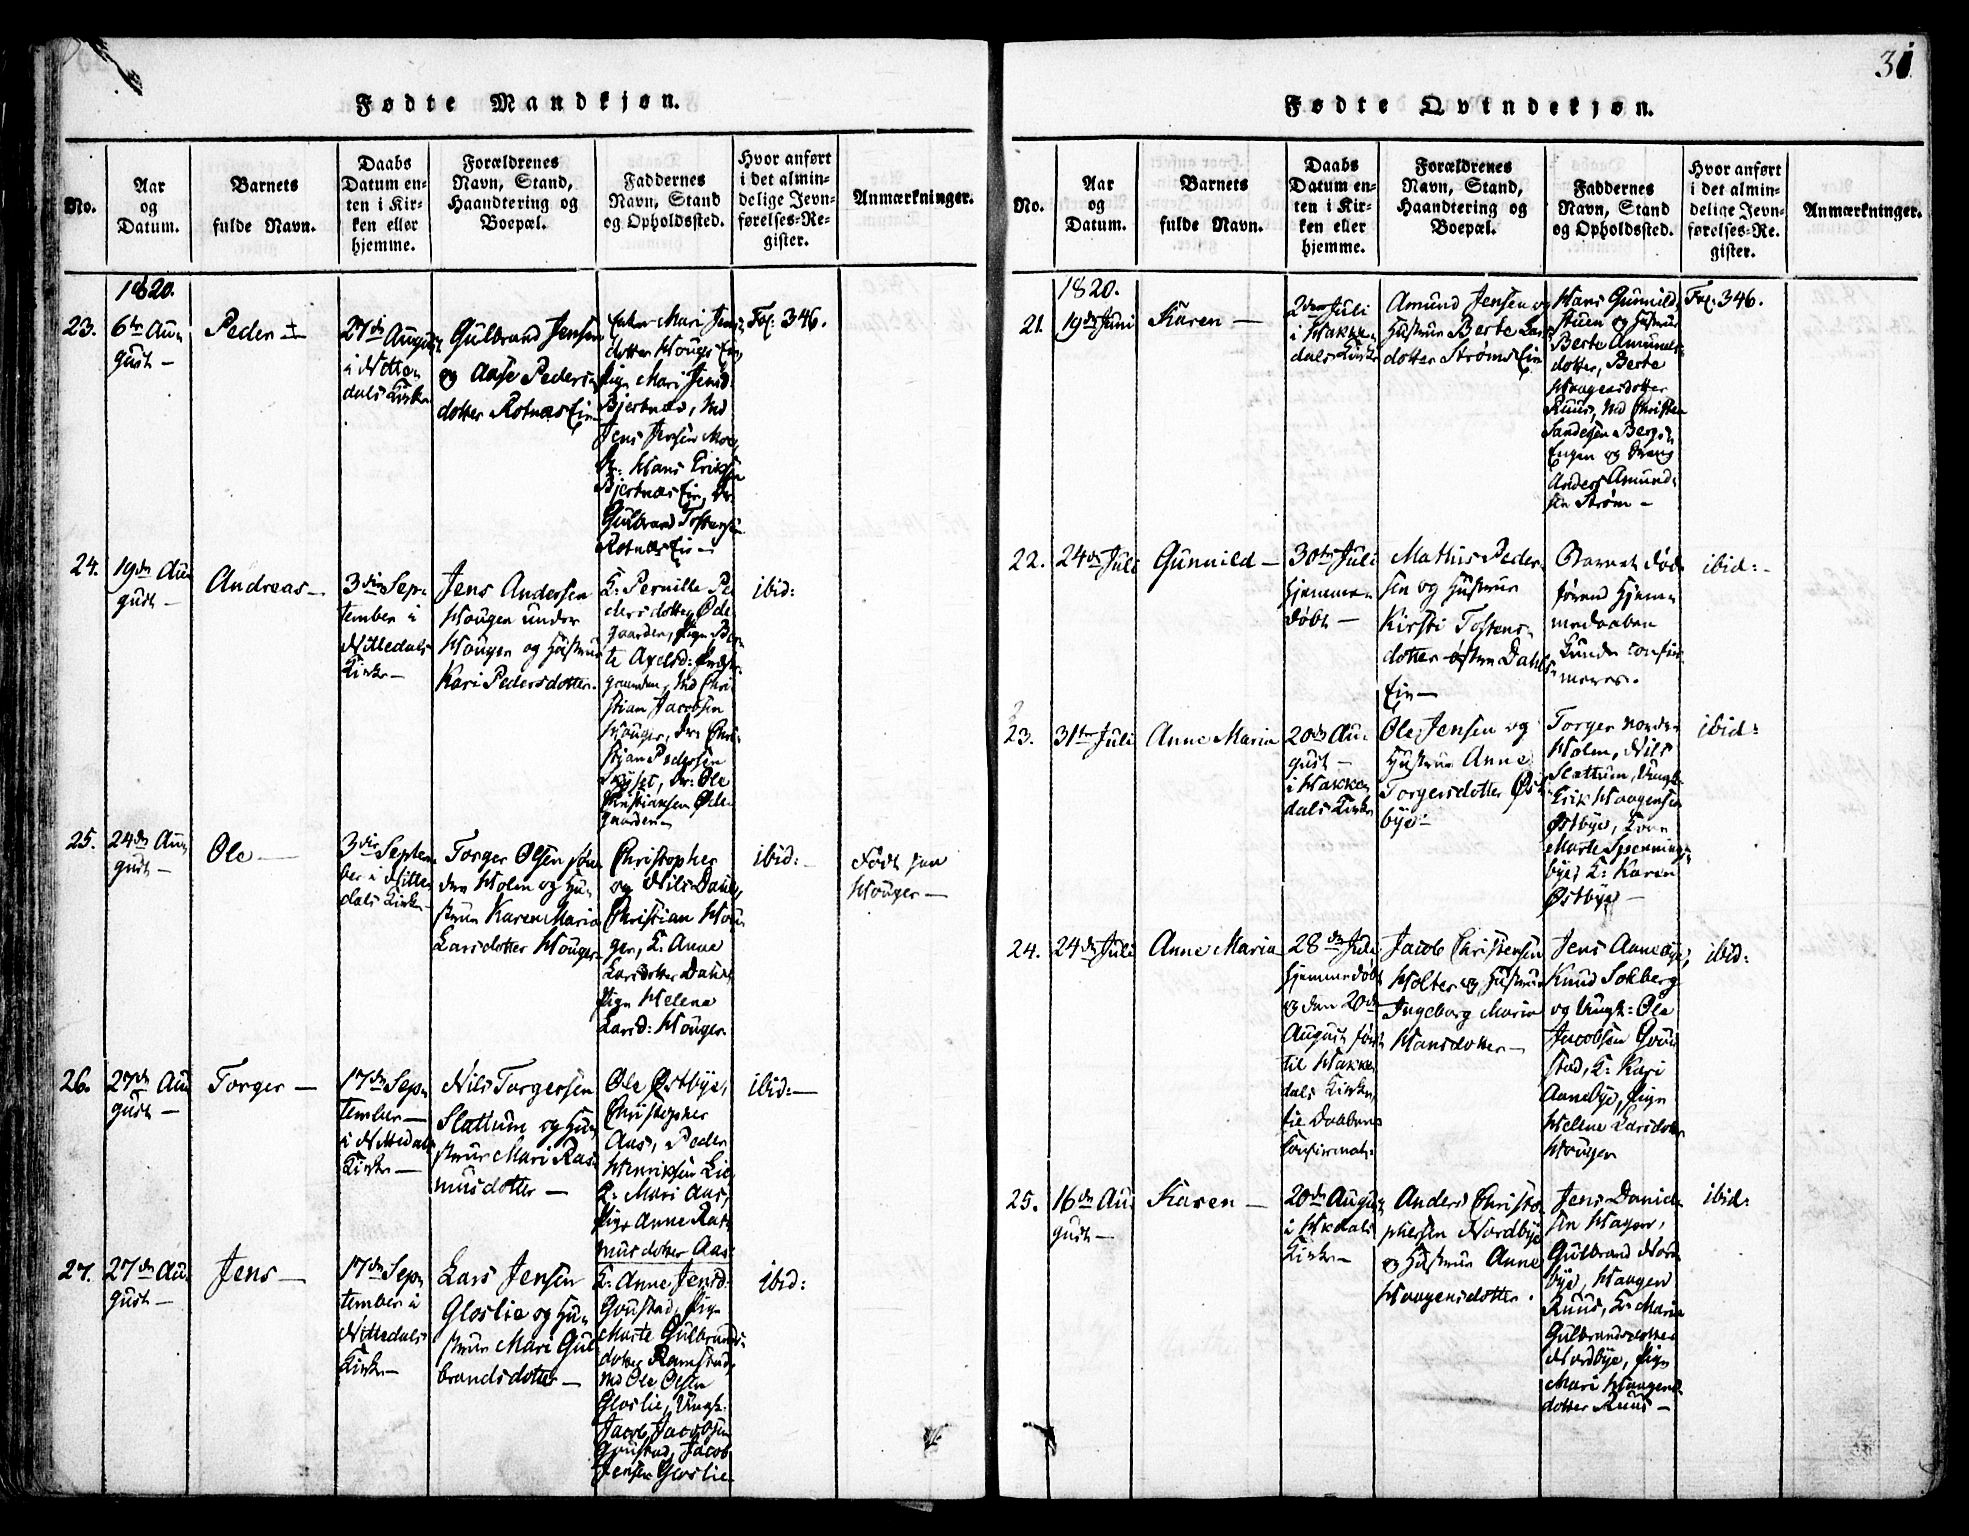 31
Fødte Mandkjøn.
No.
Aar
og
Datum.
Barnets
fulde Navn.
Daabs
Datum en-
ten i Kir-
ken eller
hjemme.
Forældrenes
Navn, Stand,
Haandtering og
Boepæl.
Faddernes
Navn, Stand
og Opholdssted.
Hvor anført
i det almin-
delige Jevn-
førelses-Re-
gister.
Anmærkninger.
1820.
23.
6te Au-
gust —
Peder
27de August
i Nitte-
dals Kirke
Gulbrand Jensen
og Aase Peders-
dotter Rotnæs Eie
Mari Jens-
dotter Houger Eie,
Pign Mari Jensd:
Bjertnæs,
Jens Jensen Moe,
Hans Eriksen
Bjertnæs Eie,
Gulbrand Tostensen
Rotnæs Eie —
Fol: 346.
24.
19de Au-
gust —
Andreas —
3die Sep-
tember i
Nittedals
Kirke —
Jens Andersen
Hougen under
Houger og Hustrue
Kari Pedersdotter.
K: Pernille Pe-
dersdotter Øde-
gaarden, Pign Ber-
te Axelsd:
Chri-
stian Jacobsen
Houger, Chri-
stian Pedersen
Ole
Christiansen Øde-
gaarden —
ibid:
25.
24de Au-
gust —
Ole —
3die Septem-
ber i Nitte-
dals Kirke —
Torger Olsen
Holm og Hu-
strue Karen Maria
Larsdotter Houger
Christopher
og Nils Dahl,
Christian Hou-
ger, K: Anne
Larsdotter Dahl,
Pign Helena
Larsd: Houger
ibid: —
Født paa
Houger —
26.
27de Au-
gust —
Torger —
17de Sep-
tember —
i Nittedals
Kirke —
Nils Torgersen
Slattum og Hu-
strue Mari Ras-
musdotter —
Ole Østbye,
Christopher
Aas, Peder
Henriksen Lie
K: Mari Aas,
Pign Anne Ras-
musdotter Aas
ibid: —
27.
27de Au-
gust —
Jens —
17de Sep-
tember i
Nittedals
Kirke —
Lars Jensen
Gloslie og Hu-
strue Mari Gul-
brandsdotter —
K: Anne Jensd:
Gvustad, Pign
Marte Gulbrands-
dotter Ramstad,
Ole Olsen
Gloslie, Ungk:
Jacob Jacobsen
Gvustad, Jacob
Jensen Gloslie
ibid:
Fødte Qvindekjøn.
No.
Aar
og
Datum.
Barnets
fulde Navn.
Daabs
Datum en-
ten i Kir-
ken eller
hjemme.
Forældrenes
Navn, Stand,
Haandtering og
Boepæl.
Faddernes
Navn, Stand
og Opholdssted.
Hvor anført
i det almin-
delige Jevn-
førelses-Re-
gister.
Anmærkninger.
1820.
21.
19de Juni
Karen —
2den Juli
i Hakke-
dals Kirke
Amund Jensen og
Hustrue Berte Lars-
dotter Strøms Eie
Hans Gunnild-
stuen og Hustrue
Berte Amunds-
dotter, Berte
Haagensdotter
Ruus, Christen
Berg-
Engen og Dreng
Anders Amund-
sen Strøm —
Fol: 346.
22.
24de Juli
Gunnild —
30te Juli
hjemme-
døbt —
Mathis Peder-
sen og Hustrue
Kirsti Tostens-
dotter østre Dahls
Eie —
Barnet døde
førend Hjem-
medaaben
kunde confir-
meres.
ibid: —
23.
31te Juli
Anne Maria
20de Au-
gust —
i Hakke-
dals Kirke
Ole Jensen og
Hustrue Anne
Torgersdotter Øst-
bye —
Torger nordre
Holm, Nils
Slattum, Ungk:
Erik Haagensen
Østbye, Kone
Marte Spenning-
bye, K: Karen
Østbye —
ibid:
24.
24de Juli
Anne Maria
28de Juli
hjemmedøbt
og den 20de
August ført
til Hakke-
dals Kirke
til Daabens
Confirmats:
Jacob Christensen
Holter og Hustrue
Ingeborg Maria
Hansdotter —
Jens Aanebye,
Knud Solberg
og Ungk: Ole
Jacobsen Gvus-
stad, K: Kari
Aanebye, Pign
Helene Larsdotter
Houger
ibid:
25.
16de Au-
gust —
Karen —
20de August
i Hkdals
Kirke —
Anders Christo-
phersen Nordbye
og Hustrue Anne
Haagensdotter.
Jens Daniel-
sen Hagen,
Gulbrand Nord-
bye, Haagen
Ruus, K: Maria
Gulbrandsdotter
Nordbye, Pign
Mari Haagens-
dotter Ruus —
ibid: